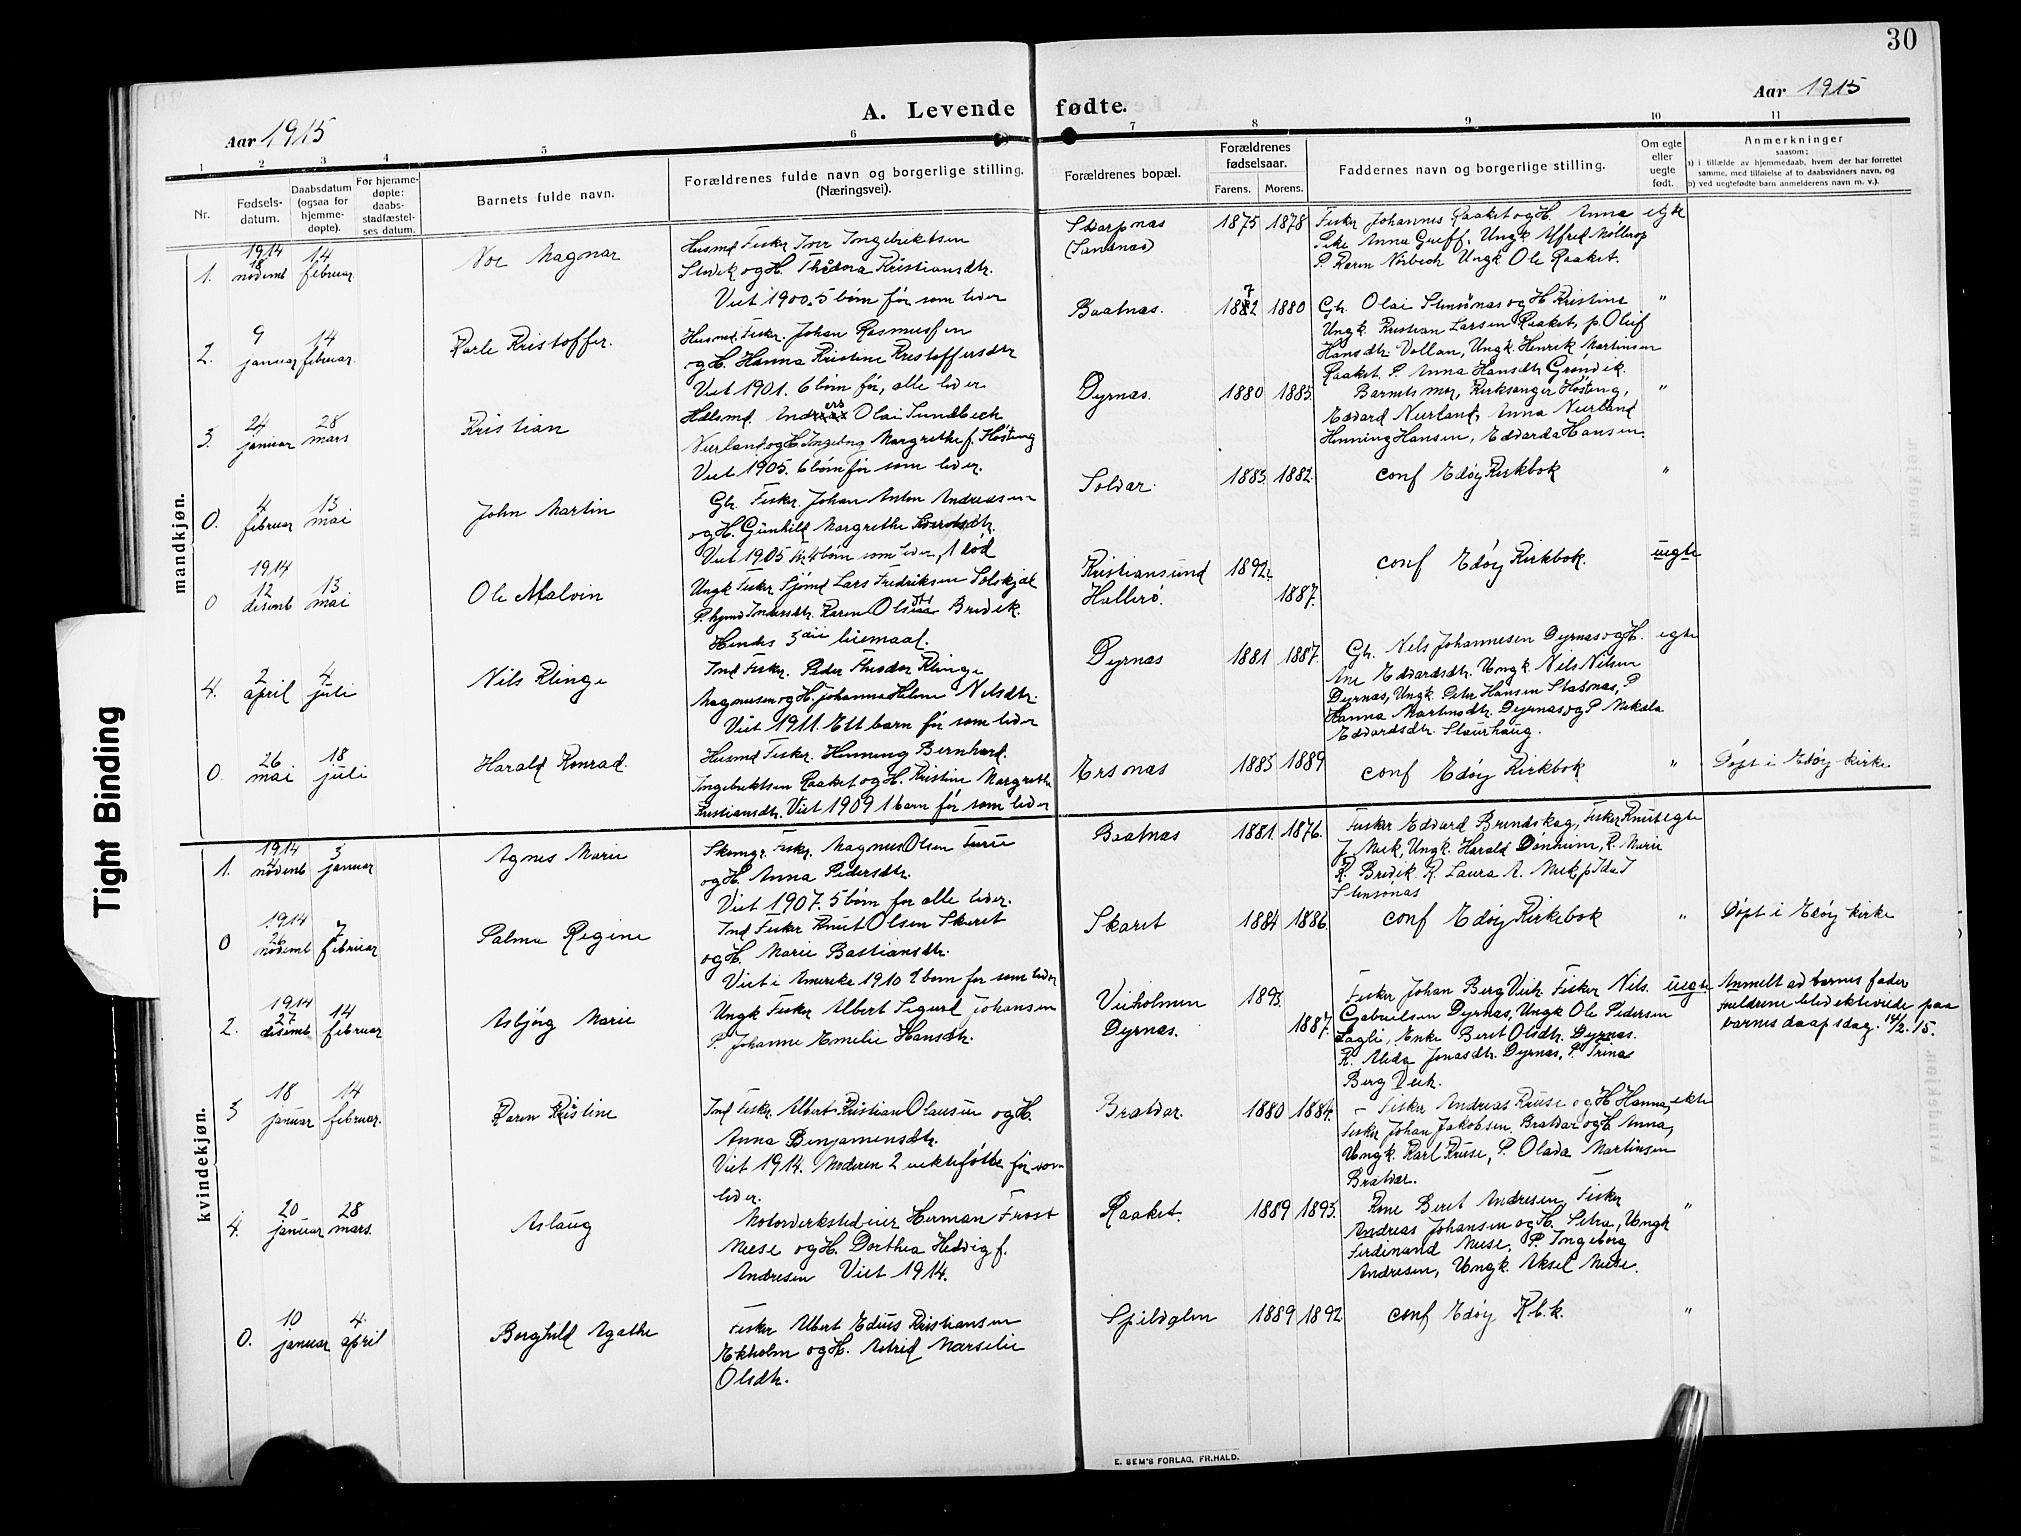 30
Aar 1915
A. Levende fødte.
Aar 1915
1 2 3 4 5 6 7 8 9 10 11
Nr.
Fødsels-
datum.
Daabsdatum
(ogsaa for
hjemme-
døpte).
For hjemme-
døpte:
daabs-
stadfæstel-
ses datum.
Barnets fulde navn.
Forældrenes fulde navn og borgerlige stilling.
(Næringsvei).
Forældrenes bopæl.
Forældrenes
fødselsaar.
Farens. Morens.
Faddernes navn og borgerlige stilling.
Om egte
eller
uegte
født.
Anmerkninger
saasom:
a) i tilfælde av hjemmedaab, hvem der har forrettet
samme, med tilføielse af to daabsvidners navn, og
b) ved uegtefødte barn anmelderens navn m. v.).
mandkjøn.
1. 1914 18 novemb 14 februar
Magnar
Husmd Fisker Iver Ingebriktsen
og H. Kristiansdtr.
Viet 1900. 5 børn før som lever
Skarpnas
(Sandnas)
1875 1878
Fisker Johannes Raaket og H. Anna
Pike Anna Ungk Alfred
P. Karen Ungk Ole Raaket.
egte
2. 9 januar 14 februar.
Karle Kristoffer.
Husmd. Fisker. Johan Rasmussen
og H. Hanna Kristine Kristoffersdtr
Viet 1901. 6 børn før, alle lever
Baatnas.
1872 1880
Olai Stensønas og H Kristine
Ungk. Kristian Larsen Raaket, p. Oluf
Hansdtr. Vollan, Ungk. Henrik Martinsen
Raaket. P. Anna Hansdtr Grønvik.
"
3. 24 januar 28 mars
Kristian
Anders Olai Sundbech
Nerland og H Ingeborg Margrethe f. Høsteng
Viet 1905. 6 børn før som lever.
Dyrnas.
1880 1885
Barnets mor, Kirksanger Høsteng,
Edvard Nerland, Anna Nerland
Henning Hansen, Edvarda Hansen.
"
0. 4 februar 13 mai
John Martin
Fisker. Johan Anton Andreasen
og H. Gunhild Margrethe
Viet 1905 4 børn som lever, 1 død
Soldar.
1883 1882.
conf Edøy Kirkbok
"
0 1914 12 desemb 13 mai
Ole Malvin
Ungk Fisker Sjømd Lars Fredriksen Solskjæl
Karen Olsdtr Bredvik.
Hendes 3die leiemaal.
Kristiansund
Hallerø.
1892.
1887.
conf Edøy Kirkbok.
uegte
4. 2 april 4 juli
Nils Klinge
Ind Fisker. Peder Theodor Klinge
Magnusen og H. Johanna Helene Nilsdtr.
Viet 1911. Ett barn før som lever
Dyrnas
1881 1887.
Nels Johannesen Dyrnas og H.
Ane Edvardsdtr. Ungk. Nils Nilsen
Dyrnas, Ungk. Peter Hansen Stabnas, P
Hanna Martinsdtr. Dyrnas og P. Nekola
Edvardsdtr. Staurhaug.
egte
0. 26 mai 18 juli
Harald Konrad.
Husmd Fisker. Henning Bernhard.
Ingebriktsen Raaket og H. Kristine Margrethe
Kristiansdtr. Viet 1909 1 barn før som lever
Ersnas
1885 1889
conf Edøy Kirkbok
"
Døpt i Edøy kirke
kvindekjøn.
1. 1914 novemb 3 januar
Agnes Marie
Fisker. Magnus Olsen
og H. Anna Pedersdtr.
Viet 1907. 5 børn før alle lever.
Baatnas
1881. 1876.
Fisker Edvard Brendskag, Fisker Knut
J. Ungk. Harald Dønheim, K. Marie
K. Bredvik. K. Laura A.
Stensønas
egte
0 1914 26 novemb 7 februar
Palma Regine
Ind Fisker Knut Olsen Skaret
og H. Marie Bastiansdtr.
Viet i Amerika 1910 børn før som lever
Skaret
1884 1886.
conf Edøy Kirkebok
"
Døpt i Edøy kirke
2. 1914 27 desemb 14 februar
Asbjørg Marie
Ungk Fisker Albert Sigurd Johansen
P. Johanne Emelie Hansdtr.
Veiholmen
Dyrnas.
1893.
1887.
Fisker Johan Berg Veih. Fisker Nils.
Gabrielsen Dyrnas, Ungk Ole Pedersen
Enke Beret Olsdtr. Dyrnas.
K. Jonasdtr. Dyrnas, P. Trina
Berg Veih.
uegte
Anmelt av barnes fader
foreldrene blev ektevide paa
barnes daapsdag. 14/2. 15.
3 18 januar 14 februar.
Karen Kristine
Ind Fisker Albert Kristian Olausen og H.
Anna Benjamensdtr.
Viet 1914. Moderen 2 uektefødte før som
lever.
Bratvar.
1880 1884.
Fisker Andreas Kruse og H Hanna,
Fisker Johan Jakobsen, Bratvar og H Anna,
Ungk. Karl Kruse, P. Olava Martinsen
Bratvar.
ekte
4. 20 januar 28 mars.
Aslaug
Motorverkstedeier Herman Frost
Neese og H. Dorthea Hedvig f.
Andresen Viet 1914.
Raaket.
1889 1893.
Kone Beret Andresen, Fisker
Andreas Johansen og H. Petra, Ungk
Ferdinand Neese, P. Ingeborg
Andresen, Ungk. Aksel Neese.
"
0. 10 januar 4. april
Borghild Agathe
Fisker Albert Edius Kristiansen
Ekholm og H. Astrid Marselie
Olsdtr.
1889 1892
conf Edøy K.b.k.
"
E. SEM'S FORLAG, FR.HALD.
Tight Binding